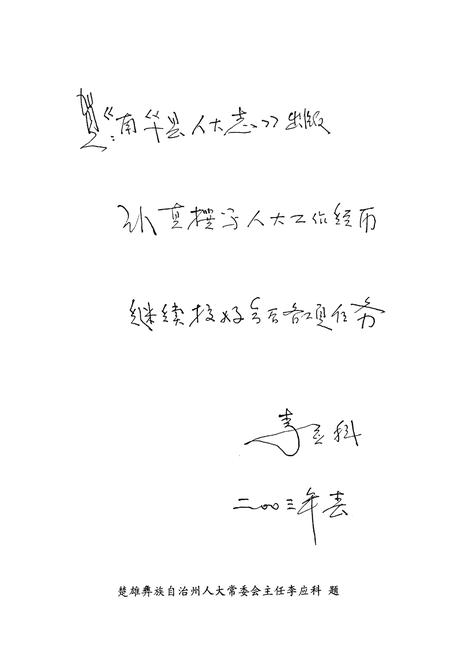 贺《南华县人大志》出版
认真撰写人大工作经历
继续搞好今后各项任务
李应科
二〇〇三年春
楚雄彝族自治州人大常委会主任李应科 题